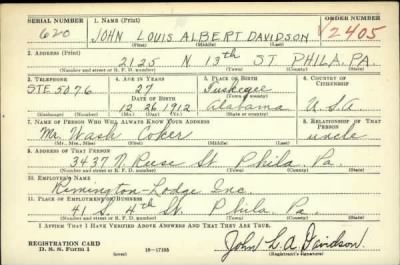 SERIAL NUMBER 1. NAME (Print) ORDER NUMBER
620 JOHN LOUIS ALBERT DAVIDSON V2405
(First) (Middle) (Last)
2. ADDRESS (Print)
2125 N 13th ST PHILA. PA.
(Number and street or R. F. D. number) (Town) (County) (State)
3. TELEPHONE 4. AGE IN YEARS 5. PLACE OF BIRTH 6. COUNTRY OF CITIZENSHIP
STE 5076 27 Tuskegee
DATE OF BIRTH (Town or county)
12 26 1912 Alabama U.S.A
(Exchange) (Number) (Mo.) (Day) (Yr.) (State or country)
7. NAME OF PERSON WHO WILL ALWAYS KNOW YOUR ADDRESS 8. RELATIONSHIP OF THAT PERSON
Mr. Wash Coker uncle
(Mr., Mrs., Miss) (First) (Middle) (Last)
9. ADDRESS OF THAT PERSON
3437 N. St Phila. Pa.
(Number and street or R. F. D. number) (Town) (County) (State)
10. EMPLOYER'S NAME
Remington-Lodge Inc.
11. PLACE OF EMPLOYMENT OR BUSINESS
41 S. 4th St. Phila. Pa.
(Number and street or R. F. D. number) (Town) (County) (State)
I AFFIRM THAT I HAVE VERIFIED ABOVE ANSWERS AND THAT THEY ARE TRUE.
REGISTRATION CARD
D. S. S. Form 1 (over) 16—17105 John L. A Davidson.
(Registrant's signature)